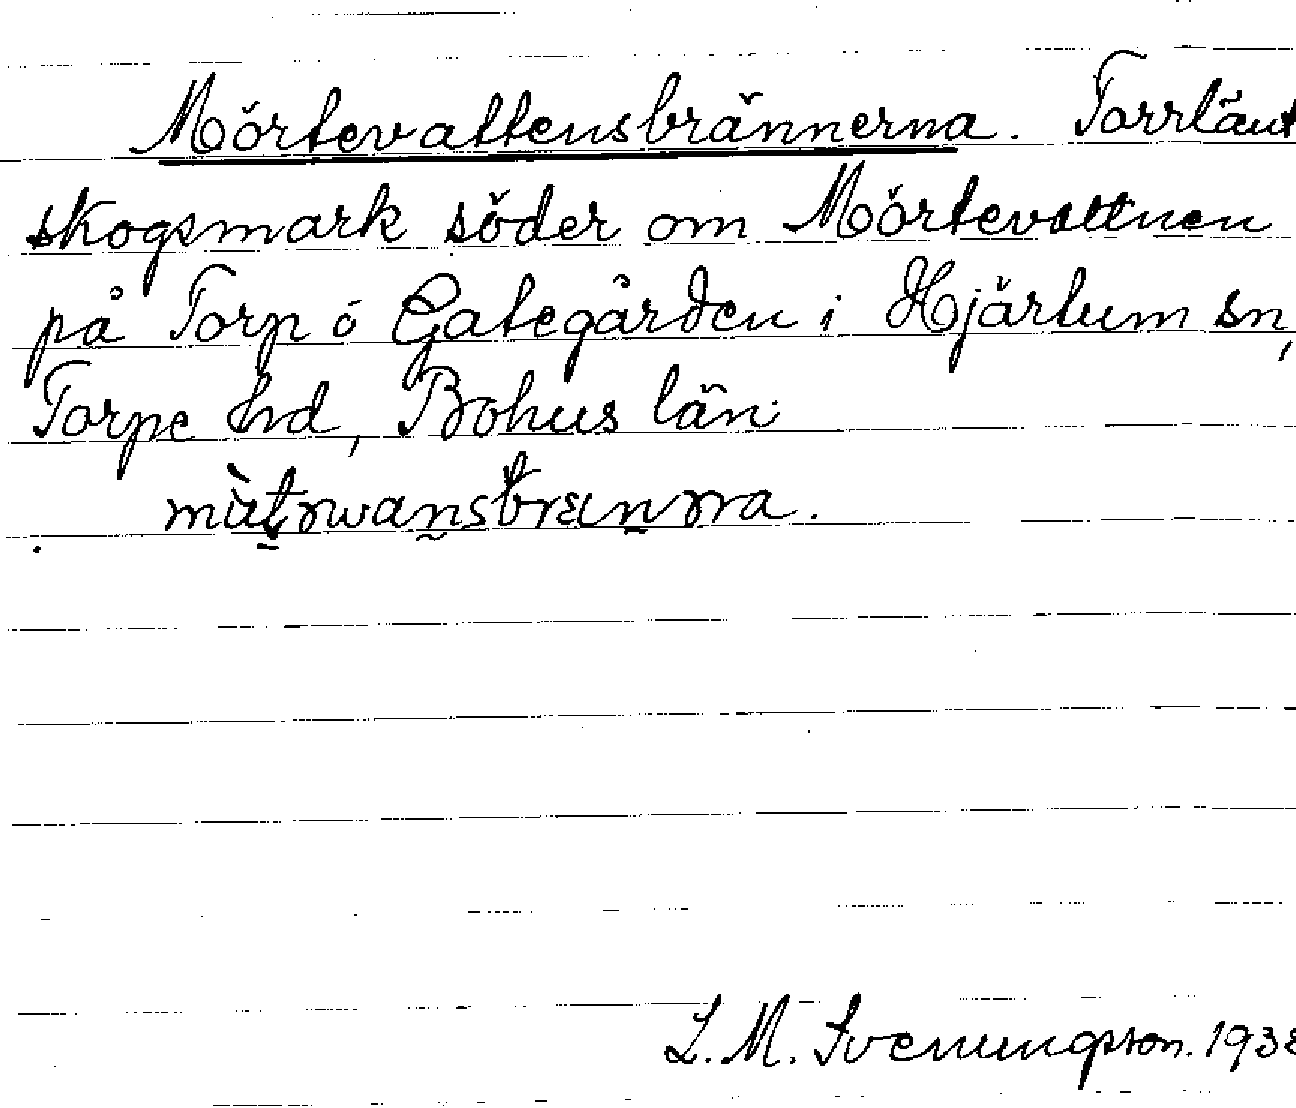 Mörtevattensbrännerna. Torrlänt
skogsmark söder om Mörtevattnen
på Torp ö Gategården i Hjärtum sn,
Torpe hd, Bohus län
L. M. Svenungsson. 193